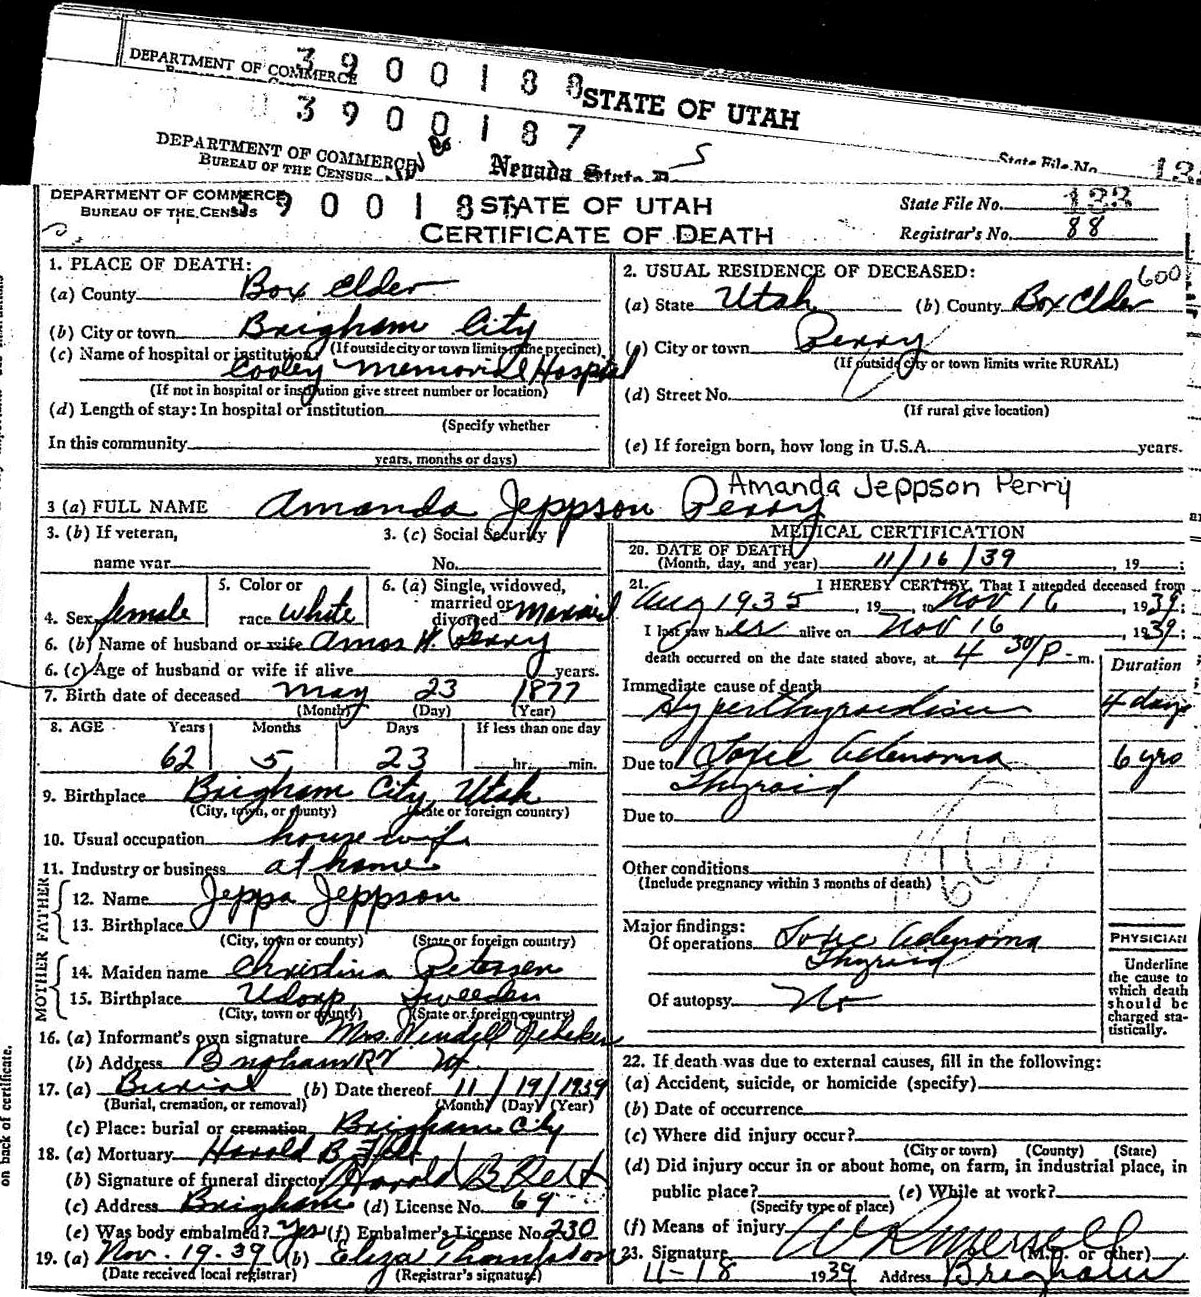 DEPARTMENT OF COMMERCE
3 9 0 0 1 8 8
STATE OF UTAH
3 9 0 0 1 8 7
DEPARTMENT OF COMMERCE
BUREAU OF THE CENSUS
Nevada State
State File No.
DEPARTMENT OF COMMERCE
BUREAU OF THE CENSUS
STATE OF UTAH
State File No. 133
CERTIFICATE OF DEATH
Registrar's No. 88
1. PLACE OF DEATH:
(a) County Box Elder
(b) City or town Brigham City
(If outside city or town limits name precinct)
(c) Name of hospital or institution:
Cooley Memorial Hospital
(If not in hospital or institution give street number or location)
(d) Length of stay: In hospital or institution
(Specify whether
In this community
years, months or days)
2. USUAL RESIDENCE OF DECEASED: 600
(a) State Utah (b) County Box Elder
(c) City or town Perry
(If outside city or town limits write RURAL)
(d) Street No.
(If rural give location)
(e) If foreign born, how long in U.S.A. years.
3 (a) FULL NAME Amanda Jeppson Perry
Amanda Jeppson Perry
3. (b) If veteran, 3. (c) Social Security
name war No.
4. Sex female
5. Color or
race white
6. (a) Single, widowed,
married or
divorced Married
6. (b) Name of husband or wife Amos H. Perry
6. (c) Age of husband or wife if alive years.
7. Birth date of deceased May 23 1877
(Month) (Day) (Year)
8. AGE Years Months Days If less than one day
62 5 23 hr. min.
9. Birthplace Brigham City, Utah
(City, town, or county) (State or foreign country)
10. Usual occupation housewife
11. Industry or business at home
FATHER
12. Name Jeppa Jeppson
13. Birthplace
(City, town or county) (State or foreign country)
MOTHER
14. Maiden name Christina Petersen
15. Birthplace Sweeden
(City, town or county) (State or foreign country)
16. (a) Informant's own signature Mrs. Wendell
(b) Address Brigham
17. (a) Burial (b) Date thereof 11/19/1939
(Burial, cremation, or removal) (Month) (Day) (Year)
(c) Place: burial or cremation Brigham City
18. (a) Mortuary Harold B Felt
(b) Signature of funeral director Harold B Felt
(c) Address Brigham (d) License No. 69
(e) Was body embalmed? Yes (f) Embalmer's License No. 230
19. (a) Nov. 19-39 (b) Eliza Thompson
(Date received local registrar) (Registrar's signature)
MEDICAL CERTIFICATION
20. DATE OF DEATH
(Month, day, and year) 11/16/39, 19 ;
21. I HEREBY CERTIFY, That I attended deceased from
Aug 1935, 19 , to Nov 16, 1939;
I last saw her alive on Nov 16, 1939;
death occurred on the date stated above, at 4 30/P-m.
Duration
Immediate cause of death
Hyperthyroidism 4 days
Due to Toxic Adenoma 6 yrs
Thyroid
Due to
Other conditions
(Include pregnancy within 3 months of death)
Major findings:
Of operations Toxic Adenoma
Thyroid
Of autopsy No
PHYSICIAN
Underline
the cause to
which death
should be
charged sta-
tistically.
22. If death was due to external causes, fill in the following:
(a) Accident, suicide, or homicide (specify)
(b) Date of occurrence
(c) Where did injury occur?
(City or town) (County) (State)
(d) Did injury occur in or about home, on farm, in industrial place, in
public place? (e) While at work?
(Specify type of place)
(f) Means of injury
23. Signature (M.D. or other)
11-18 1939 Address Brigham
on back of certificate.